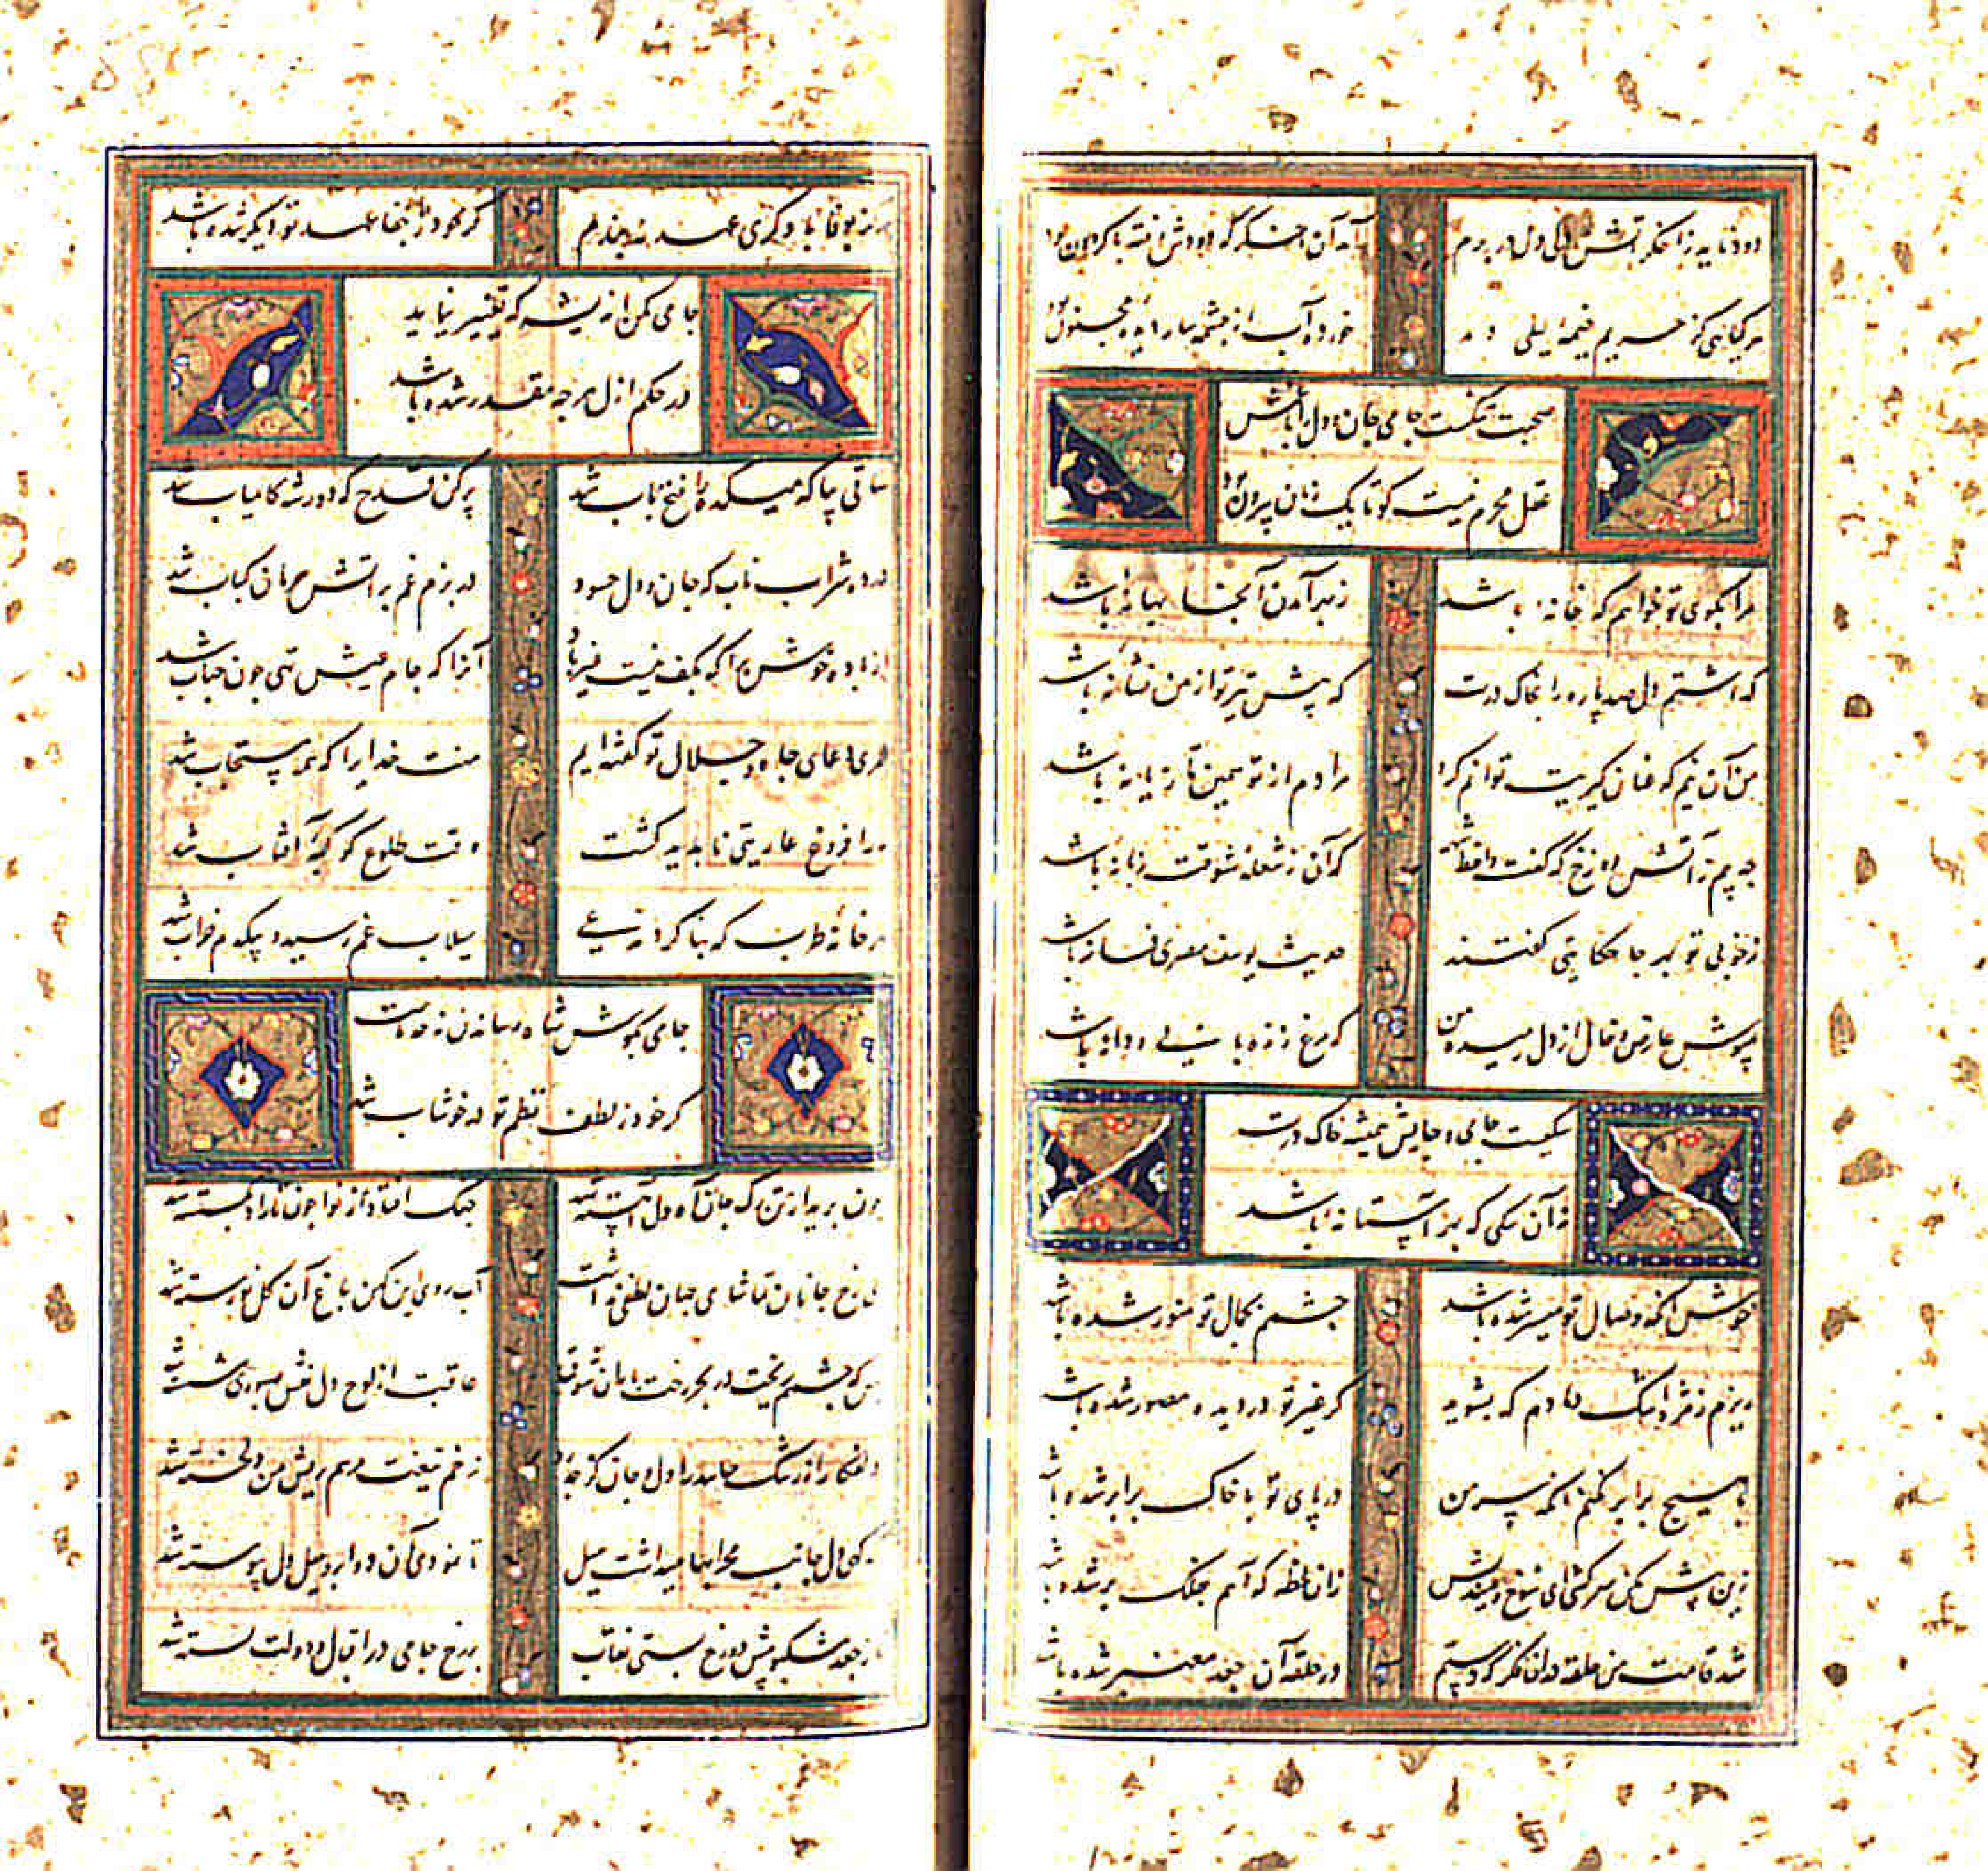 دود ناید ز اخگر آتش ولی دل در برم
آمد آن اخگر که دودش رفته با گردون بود
هر گیاهی کز حریم خیمه لیلی دمد
خورده آب از چشمه سار دیده مجنون بود
صحبت تنگست جامی جان و دل را با غمش
عقل محرم نیست گو تا یک زمان بیرون بود
مرا بکوی تو خواهم که خانه باشد
ز بهر آمدن آنجا بهانه باشد
که اشتم دل صد پاره را بخاک درت
که پیش تیر تو از من نشانه باشد
من آن نیم که عنان گیریت توانم کرد
مرادم از تو همین تازیانه باشد
چه بیم ز آتش دوزخ که گفت واعظ شهر
که آن ز شعله شوقت زبانه باشد
ز خوبی تو بهر جا حکایتی گفتند
حدیث یوسف مصری فسانه باشد
مپوش عارض و خال از دل رمیده من
که مرغ زنده بآبی و دانه باشد
سگیست جامی و جایش همیشه خاک درت
نه آن سگی که بهر آستانه باشد
خوش آنکه وصال تو میسر شده باشد
چشمم بجمال تو منور شده باشد
ریزم ز مژه اشک دمادم که بشوید
گر غیر تو در دیده مصور شده باشد
با هیچ برابر نکنم آنکه سر من
در پای تو با خاک برابر شده باشد
زین پیش مکن سرکشی ای شوخ و بیندیش
زان لحظه که آهم بفلک بر شده باشد
شد قامت من حلقه در آن فکر که دستم
در حلقه آن جعد معنبر شده باشد
هرگز بوفا با دگری عهد نبندم
گر خود بجفا عهد تو دیگر شده باشد
جامی مکن اندیشه که تغییر نیابد
در حکم ازل هر چه مقدر شده باشد
ساقی بیا که میکده را فتح باب شد
پر کن قدح که دور شه کامیاب شد
در ده شراب ناب که جان و دل حسود
در بزم غم بر آتش حرمان کباب شد
از باده خوش برآ که بکف نیست غیر باد
آنرا که جام عیش تهی چون حباب شد
عمری دعای جاه و جلال تو گفته ایم
منت خدایرا که همه مستجاب شد
مه را فروغ عاریتی ناپدید گشت
وقت طلوع کوکبه آفتاب شد
هر خانه طرب که بنا کرد مدعی
سیلاب غم رسید و بیکدم خراب شد
جامی بگوش شاه رسانیدن نه حد ماست
گر خود ز لطف نظم تو در خوشاب شد
چون برید از تن رگ جان آه دل آهسته شد
چنگ افتاد از نوا چون تار او بگسسته شد
بی رخ جانان تماشای جهان لطفی نداشت
آب روی این کهن باغ آن گل نورسته شد
بس که چشمم ریخت در بحر رخت باران شوق
عاقبت از لوح دل نقش صبوری شسته شد
زخم تیغت مرهم ریش من دلخسته شد
روی دل جانب محرابها میداشت میل
تا نمودی آن دو ابرو میل دل پیوسته شد
تا ز جعد مشکبو پیش دو رخ بستی نقاب
بر رخ جامی در اقبال و دولت بسته شد